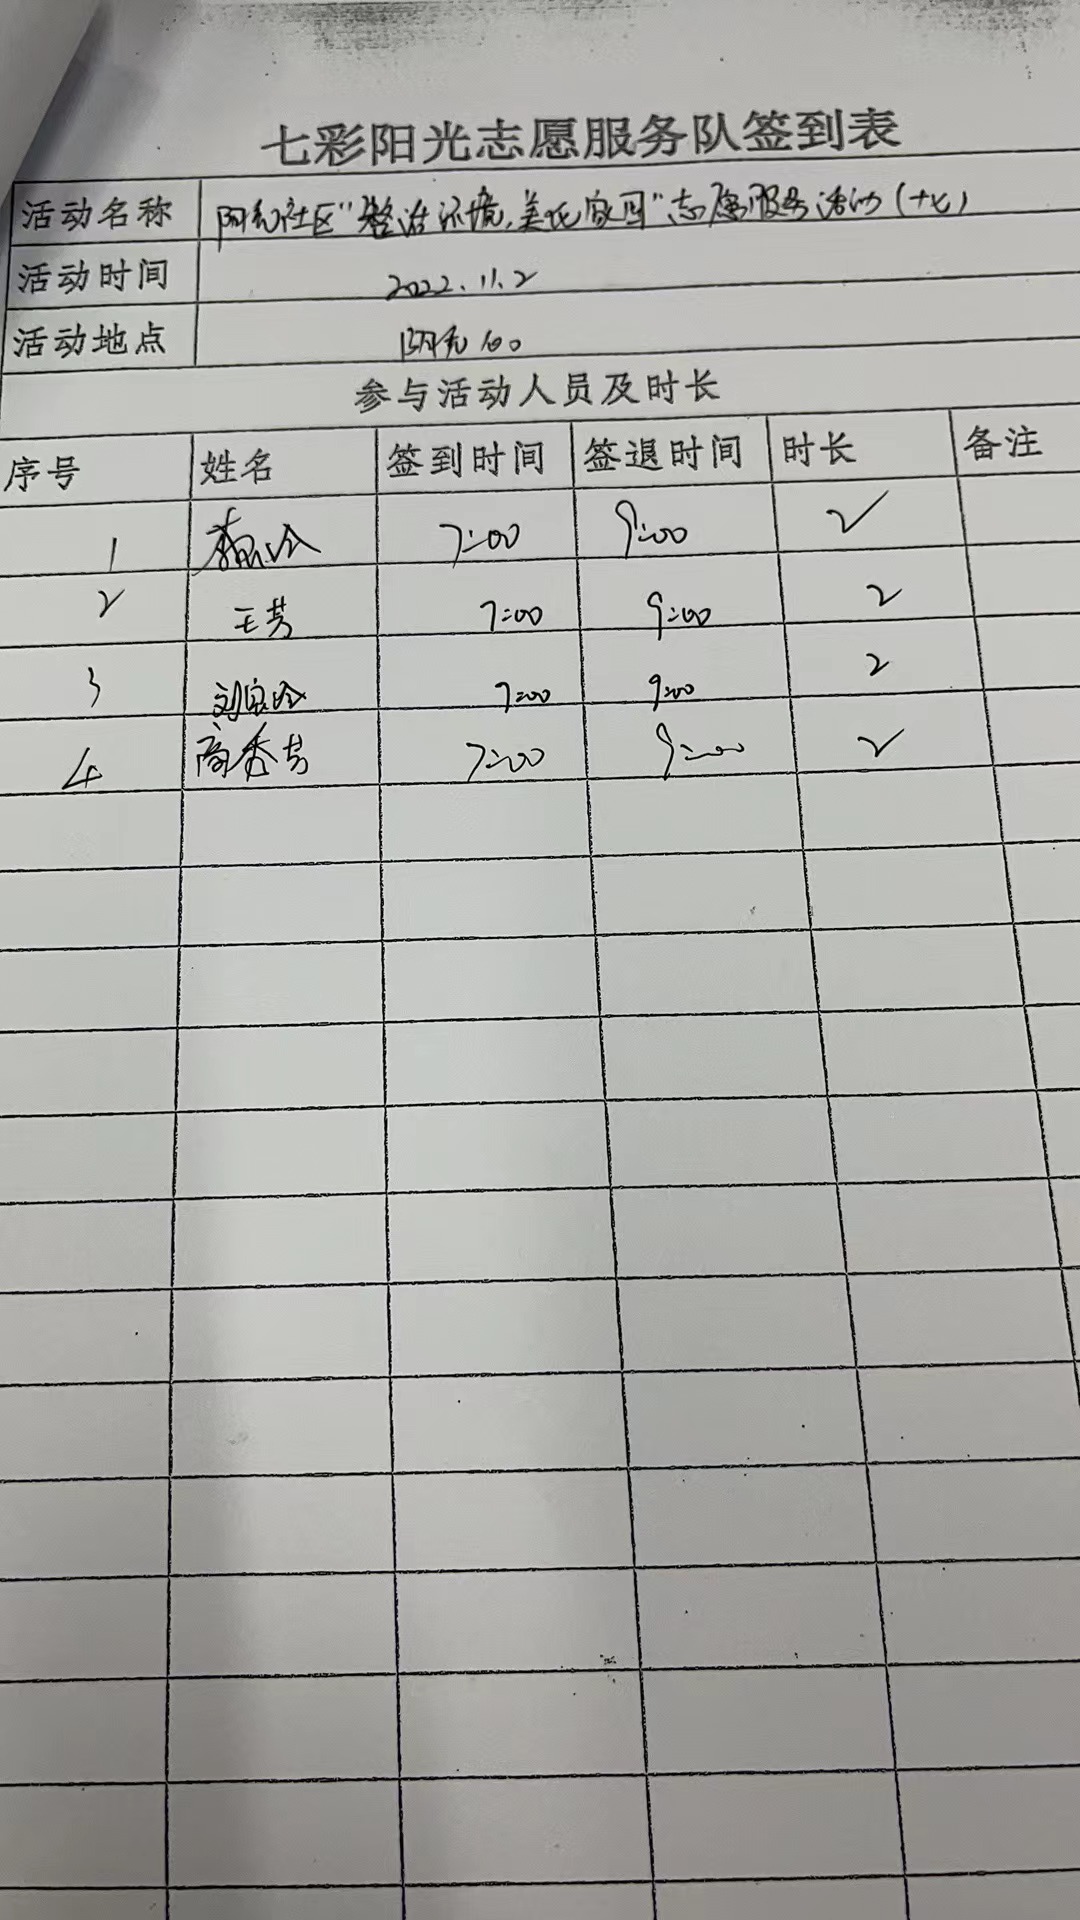 七彩阳光志愿服务队签到表
活动名称 社区"整治环境,美化家园"志愿服务活动(十七)
活动时间 2022.11.2
活动地点
参与活动人员及时长
序号 姓名 签到时间 签退时间 时长 备注
1 7:00 9:00 2
2 王芳 7:00 9:00 2
3 7:00 9:00 2
4 高秀芳 7:00 9:00 2